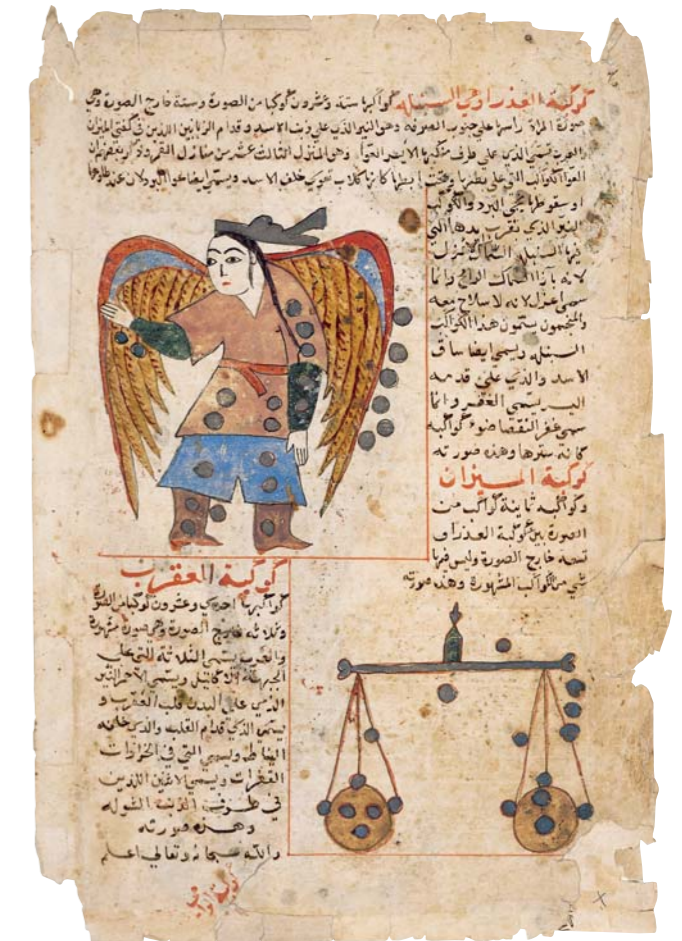 كوكبة العذرا وهي السنبله كواكبها ستة وعشرون كوكبا من الصورة وستة خارج الصورة وهي
صورة امراة راسها على جنوب الصرفه وهو النير الذي على ذنب الاسد وقدام الزبانين اللذين في كفتي الميزان
والعرب تسمي الذي على طرف منكبها الايسر العوا وهو المنزل الثالث عشر من منازل القمر
العوا الكواكب التي على بطنها وتحت ابطها كانها كلاب تعوي خلف الاسد ويسمى ايضا عوا البرد لان عند طلوعها
او سقوطها يجي البرد والكوكب
النير الذي بقرب يدها التي
فيها السنبله السماك الاعزل
لانه بازا السماك الرامح وانما
سمي اعزل لانه لا سلاح معه
والمنجمون يسمون هذا الكوكب
السنبله ويسمى ايضا ساق
الاسد والذي على قدمه
اليسر يسمى الغفر وانما
سمي غفر النقصا ضوء كواكبه
كانه سترها وهذه صورته
كوكبة الميزان
وكواكبه ثمانية كواكب من
الصورة بين كوكبة العذرا و
تسعة خارج الصورة وليس فيها
شي من الكواكب المشهورة وهذه صورته
كوكبة العقرب
كواكبها احدى وعشرون كوكبا من الصورة
وثلاثه خارج الصورة وهي صورة مشهورة
والعرب يسمي الثلاثة التي على
الجبهة الاكليل ويسمي الاحمر النير
الذي على البدن قلب العقرب و
يسمي الذي قدام القلب والذي خلفه
النياط ويسمي التي في الخرزات
الفقرات ويسمي الاثنين اللذين
في طرف الشوله
وهذه صورته
والله سبحانه وتعالى اعلم